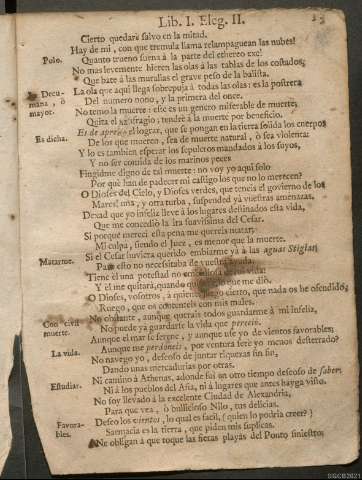 Lib. I. Eleg. II.
Cierto quedaré salvo en la mitad.
Hay de mi, con que tremula llama relampaguean las nubes!
Polo. Quanto trueno suena à la parte del ethereo exe!
No mas levemente hieren las olas á las tablas de los costados;
Que bate á las murallas el grave peso de la balista.
La Decumana, ò mayor. La ola que aqui llega sobrepuja á todas las olas: es la postrera
Del numero nono, y la primera del once.
No temo la muerte: este es un genero miserable de muerte;
Quita el naufragio; tendré à la muerte por beneficio.
Es dicha. Es de aprecio el lograr, que se pongan en la tierra solida los cuerpos
De los que mueren, sea de muerte natural, ò sea violenta:
Y lo es tambien esperar los sepulcros mandados à los suyos,
Y no ser comida de los marinos peces
Fingidme digno de tal muerte: no voy yo aqui solo
Por qué han de padecer mi castigo los que no lo merecen?
O Dioses del Cielo, y Dioses verdes, que teneis el govierno de los
Mares! una, y otra turba, suspended yá vuestras amenazas.
Dexad que yo infeliz lleve à los lugares destinados esta vida,
Que me concedió la ira suavissima del Cesar.
Si porque merecí esta pena me quereis matar;
Mi culpa, siendo el Juez, es menor que la muerte.
Matarme. Si el Cesar huviera querido embiarme yá à las aguas Stigias,
Para esto no necesitaba de vuestra ayuda.
Tiene él una potestad no embidiosa de mi vida:
Y él me quitará, quando que me dió.
O Dioses, vosotros, à quienes juzgo cierto, que nada os he ofendido;
Ruego, que os contenteis con mis males.
No obstante, aunque querais todos guardarme à mi infeliz,
Con civil muerte. No puede ya guardarse la vida que pereció.
Aunque el mar se serene, y aunque use yo de vientos favorables;
La vida. Aunque me perdoneis, por ventura seré yo menos desterrado?
No navego yo, deseoso de juntar riquezas sin fin,
Dando unas mercadurias por otras.
Estudiar. Ni camino à Athenas, adonde fui en otro tiempo deseoso de saber;
Ni à los pueblos del Asia, ni à lugares que antes haya visto.
No soy llevado á la excelente Ciudad de Alexandria,
Para que vea, ò bullicioso Nilo, tus delicias.
Favorables. Deseo los vientos, lo qual es facil, (quien lo podria creer?)
Sarmacia es la tierra, que piden mis suplicas.
Me obligan à que toque las fieras playas del Ponto siniestro;